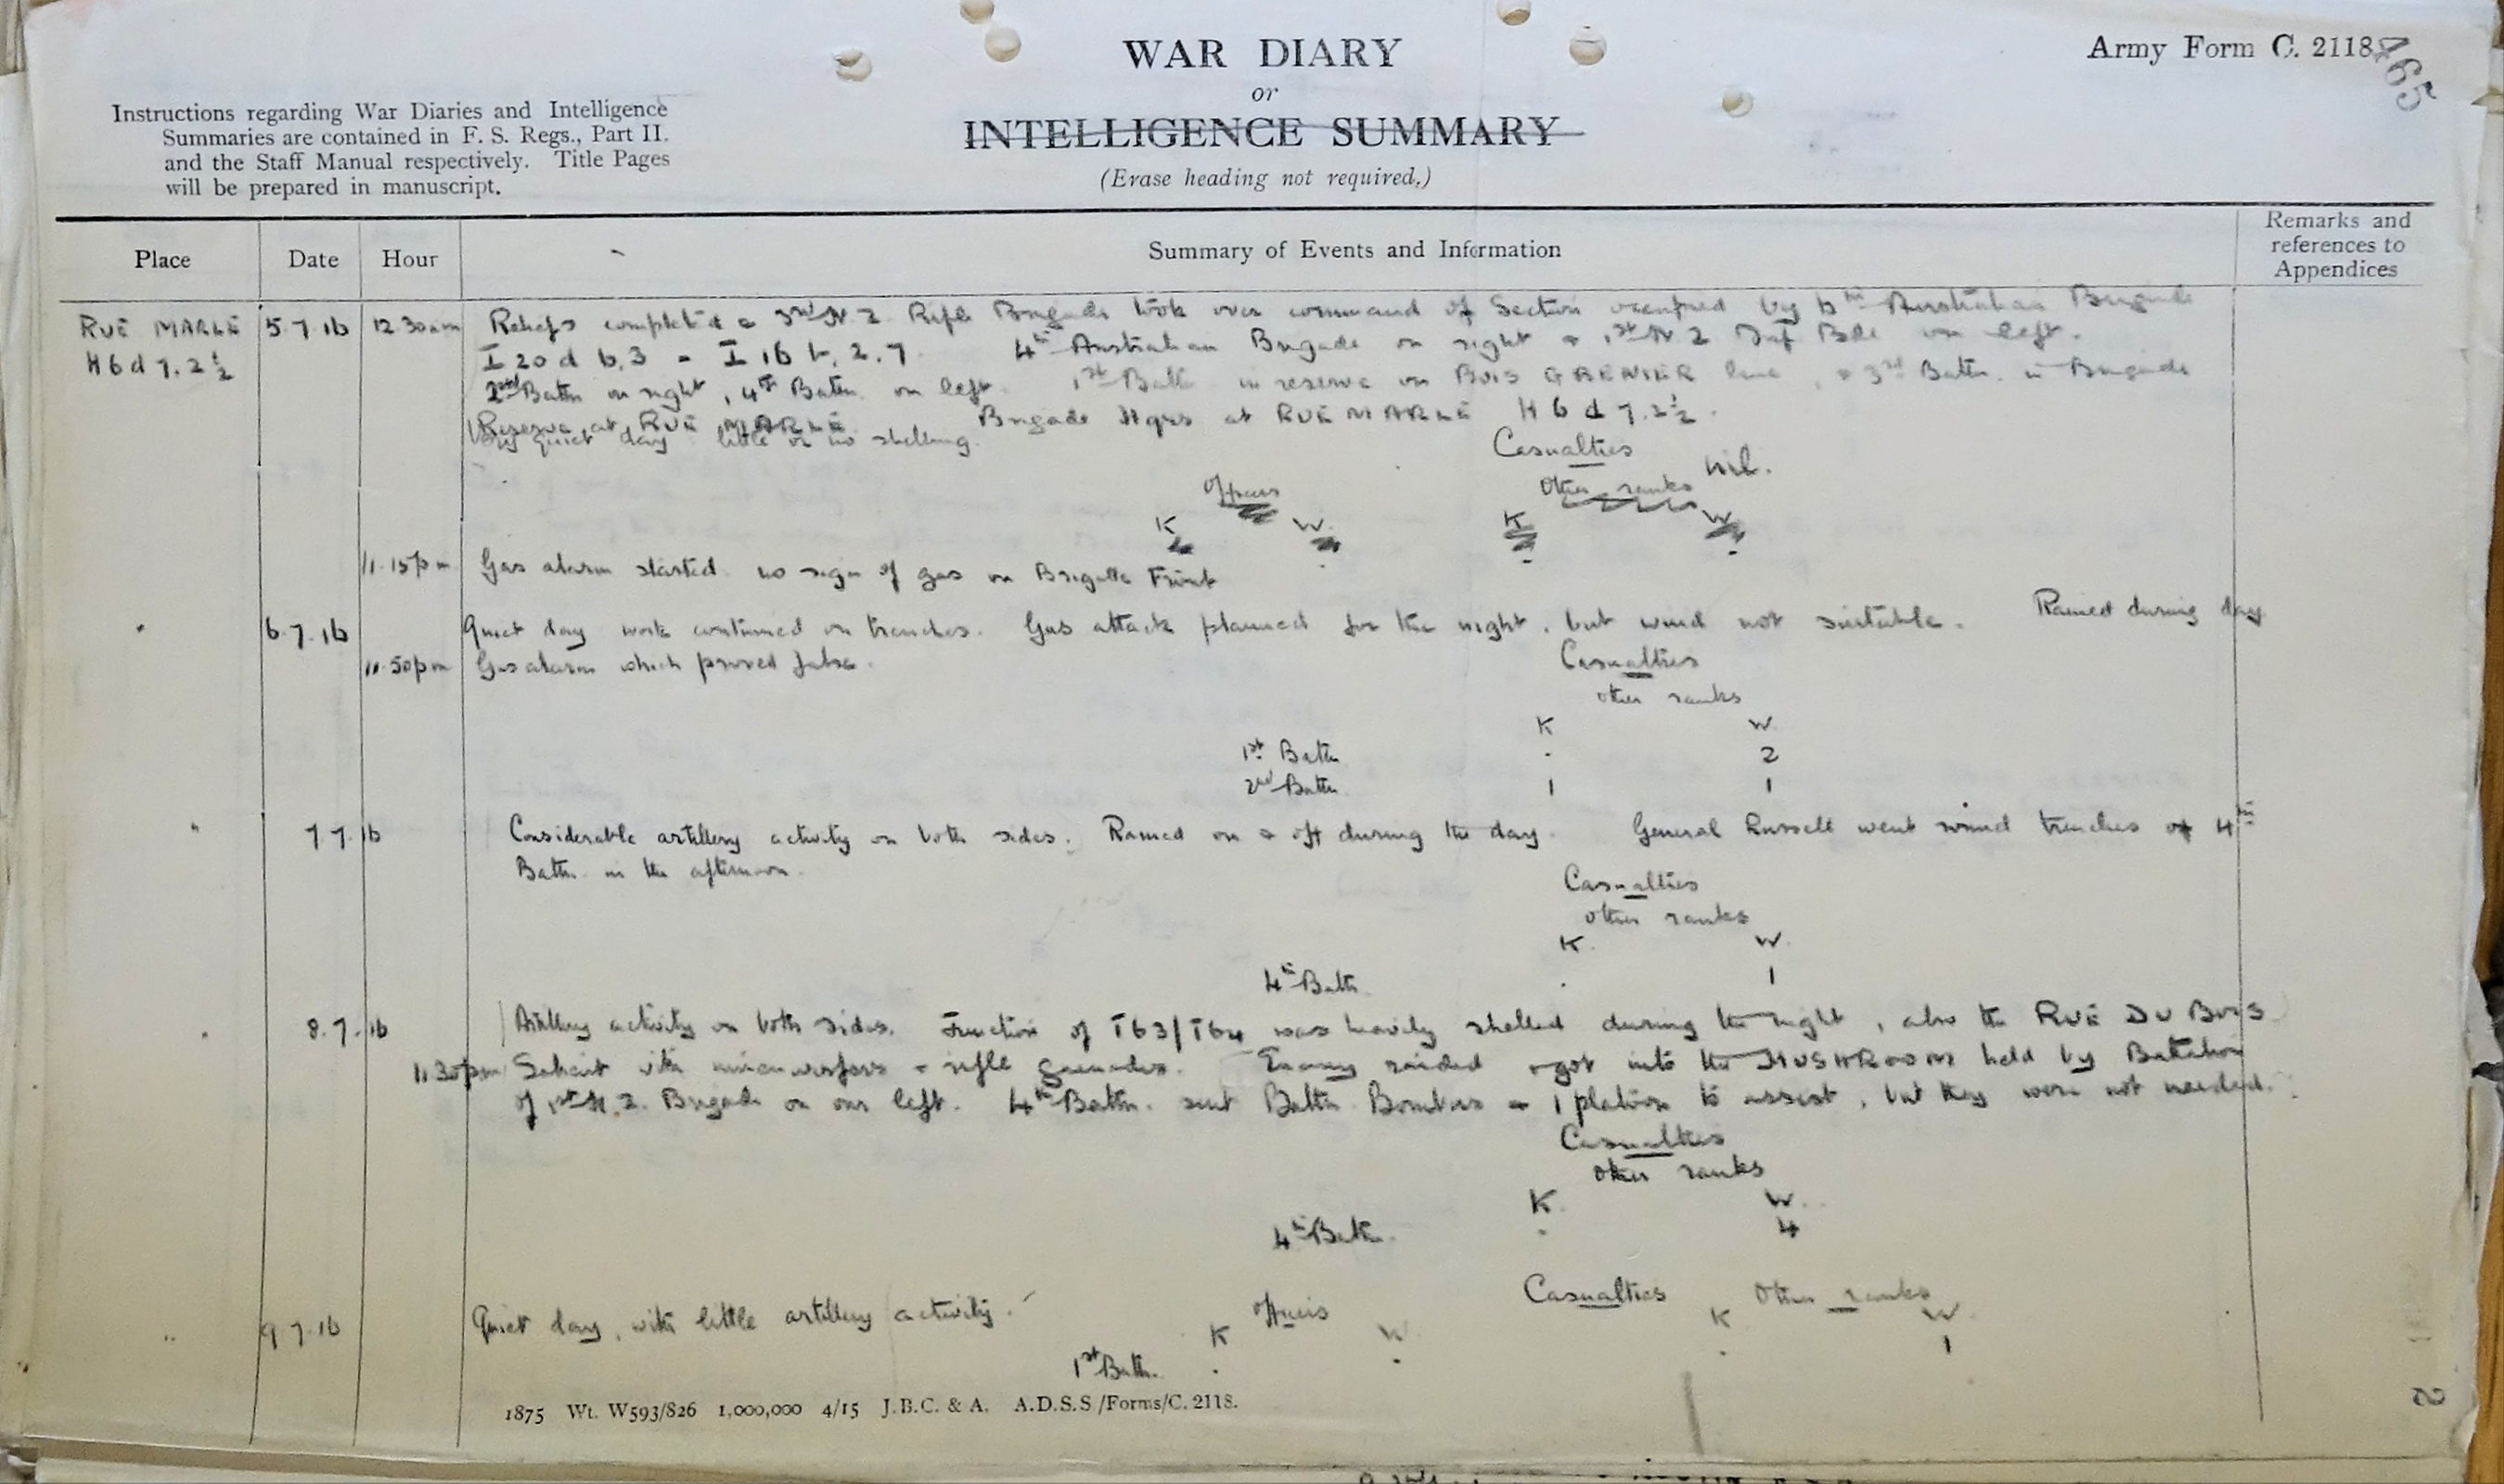 WAR DIARY
Army Form C. 2118
465
or
INTELLIGENCE SUMMARY
(Erase heading not required.)
Instructions regarding War Diaries and Intelligence
Summaries are contained in F. S. Regs., Part II.
and the Staff Manual respectively. Title Pages
will be prepared in manuscript.
Place Date Hour Summary of Events and Information Remarks and references to Appendices
RUE MARLE 5.7.16 12.30am Reliefs completed & 3rd N.Z. Rifle Brigade took over command of Section occupied by 6th Australian Brigade
H6d7.2½ I 20 d 6.3 - I 16 b, 2.7. 4th Australian Brigade on right & 1st N.Z Inf Bde on left.
2nd Battn on right, 4th Battn. on left. 1st Battn in reserve on BOIS GRENIER line, & 3rd Battn. in Brigade
Reserve at RUE MARLE. Brigade Hqrs at RUE MARLE H6d7.2½.
Very quiet day little or no shelling. Casualties
nil.
Officers Other ranks
K W. K W
11.15pm Gas alarm started no sign of gas on Brigade Front
" 6.7.16 Quiet day work continued on trenches. Gas attack planned for the night, but wind not suitable. Rained during day
11.50pm Gas alarm which proved false. Casualties
other ranks
K W
1st Battn. . 2
2nd Battn. 1 1
" 7.7.16 Considerable artillery activity on both sides. Rained on & off during the day. General Russell went round trenches of 4th
Battn. in the afternoon.
Casualties
other ranks
K. W.
4th Battn . 1
" 8.7.16 Artillery activity on both sides. Junction of T63/T64 was heavily shelled during the night, also the RUE DU BOIS
11.30pm Salient with minenwerfers & rifle grenades. Enemy raided & got into the MUSHROOM held by Battalion
of 1st N.Z. Brigade on our left. 4th Battn. sent Battn Bombers & 1 platoon to assist, but they were not needed.
Casualties
other ranks
K. W.
4th Battn. . 4
" 9.7.16 Quiet day, with little artillery activity. Officers Casualties Other ranks
K W K W
1st Battn. . . . 1
1875 Wt. W593/826 1,000,000 4/15 J.B.C. & A. A.D.S.S/Forms/C. 2118.